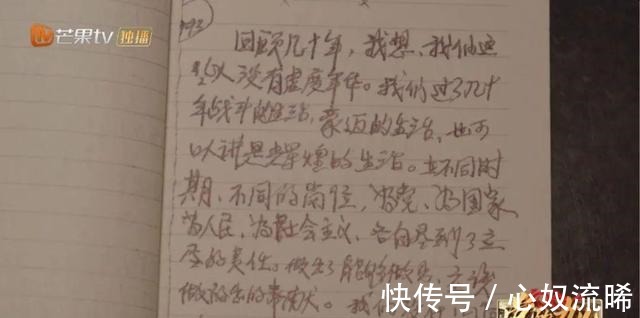 芒果tv 独播
992
回顾几十年,我想、我们这
些人没有虚度年华。我们过了几十
年战斗的生活,豪迈的生活,也可
以讲是光辉煌的生活。在不同时
期、不同的岗位,为党、为国家
为人民、为社会主义、各自尽到了应
尽的责任。做出了能够做的,应该
做的出的
我们
快传号/心奴流晞